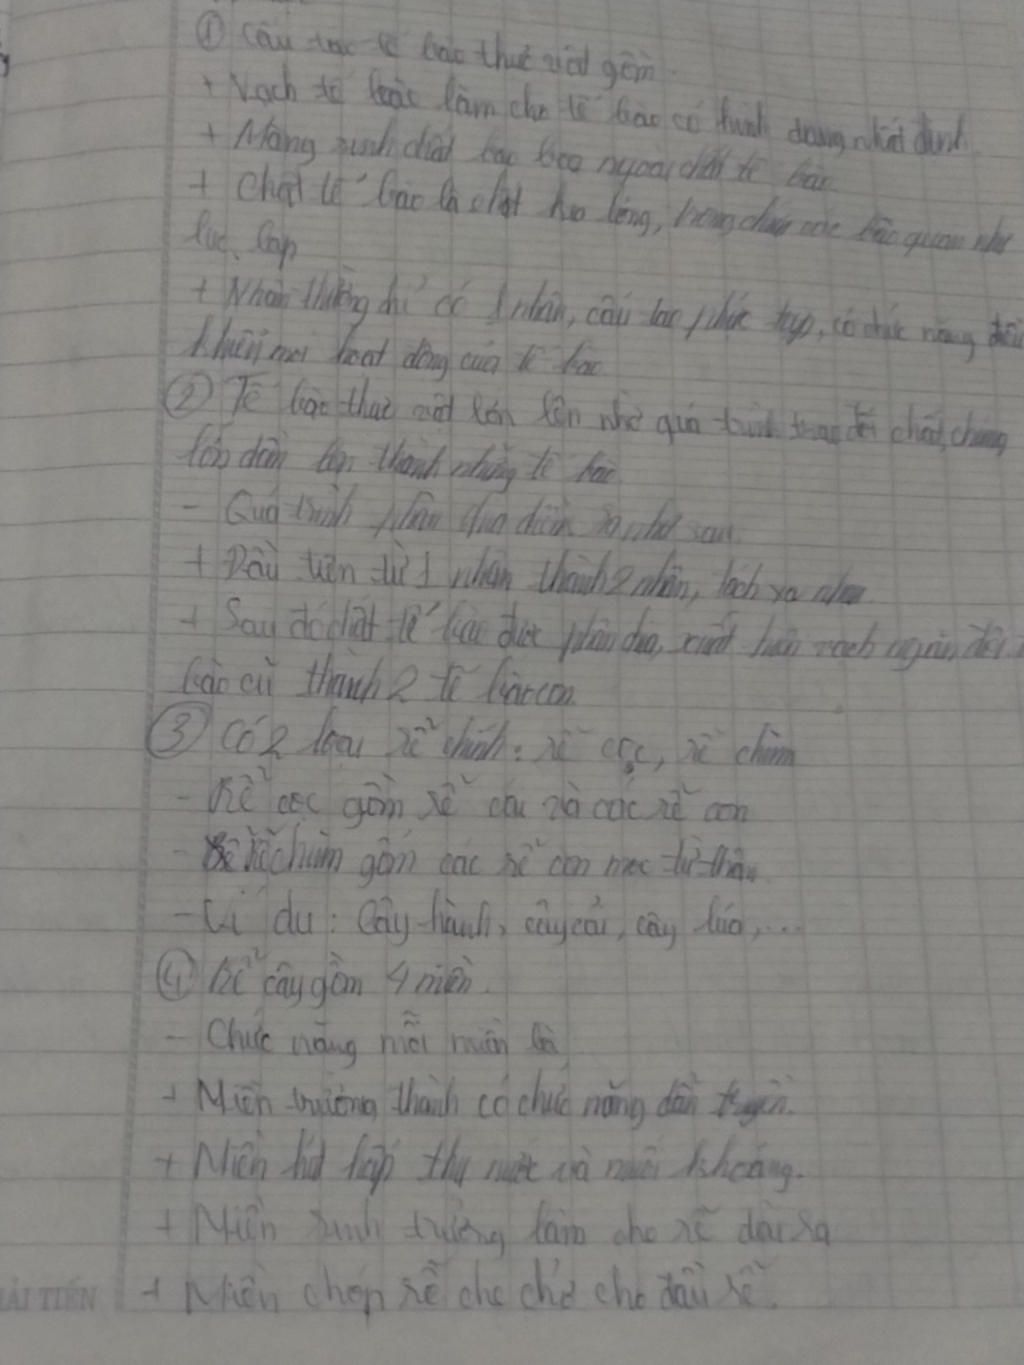 ① Cấu tạo tế bào thực vật gồm
+ Vách tế bào làm cho tế bào có hình dạng nhất định.
+ Màng sinh chất bao bọc ngoài chất tế bào
+ Chất tế bào là chất keo lỏng, trong chứa các bào quan như
lục lạp
+ Nhân thường chỉ có 1 nhân, cấu tạo phức tạp, có chức năng điều
khiển mọi hoạt động của tế bào
② Tế bào thực vật lớn lên nhờ quá trình trao đổi chất, chúng
lớn dần lên thành những tế bào
- Quá trình phân chia diễn ra như sau
+ Đầu tiên từ 1 nhân thành 2 nhân, tách xa nhau
+ Sau đó chất tế bào được phân chia, xuất hiện vách ngăn,
bào cũ thành 2 tế bào con
③ Có 2 loại rễ chính: rễ cọc, rễ chùm
- Rễ cọc gồm rễ cái và các rễ con
- Rễ chùm gồm các rễ con mọc từ thân
- Ví dụ: Cây hành, cây cải, cây lúa,...
④ Rễ cây gồm 4 miền.
- Chức năng mỗi miền là
+ Miền trưởng thành có chức năng dẫn truyền.
+ Miền hút hấp thụ nước và muối khoáng.
+ Miền sinh trưởng làm cho rễ dài ra
+ Miền chóp rễ che chở cho đầu rễ.
ẢI TIẾN